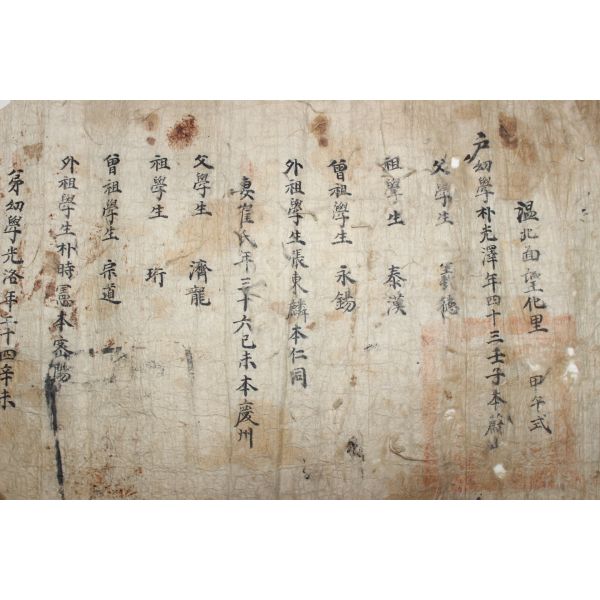 温北面聖化里 甲午式
户幼學朴光澤年四十三壬子本蔚山
父學生 義德
祖學生 泰漢
曾祖學生 永錫
外祖學生張東麟本仁同
妻崔氏年三十六己未本慶州
父學生 濟龍
祖學生 珩
曾祖學生 宗道
外祖學生朴時憲本密陽
弟幼學光洛年二十四辛未